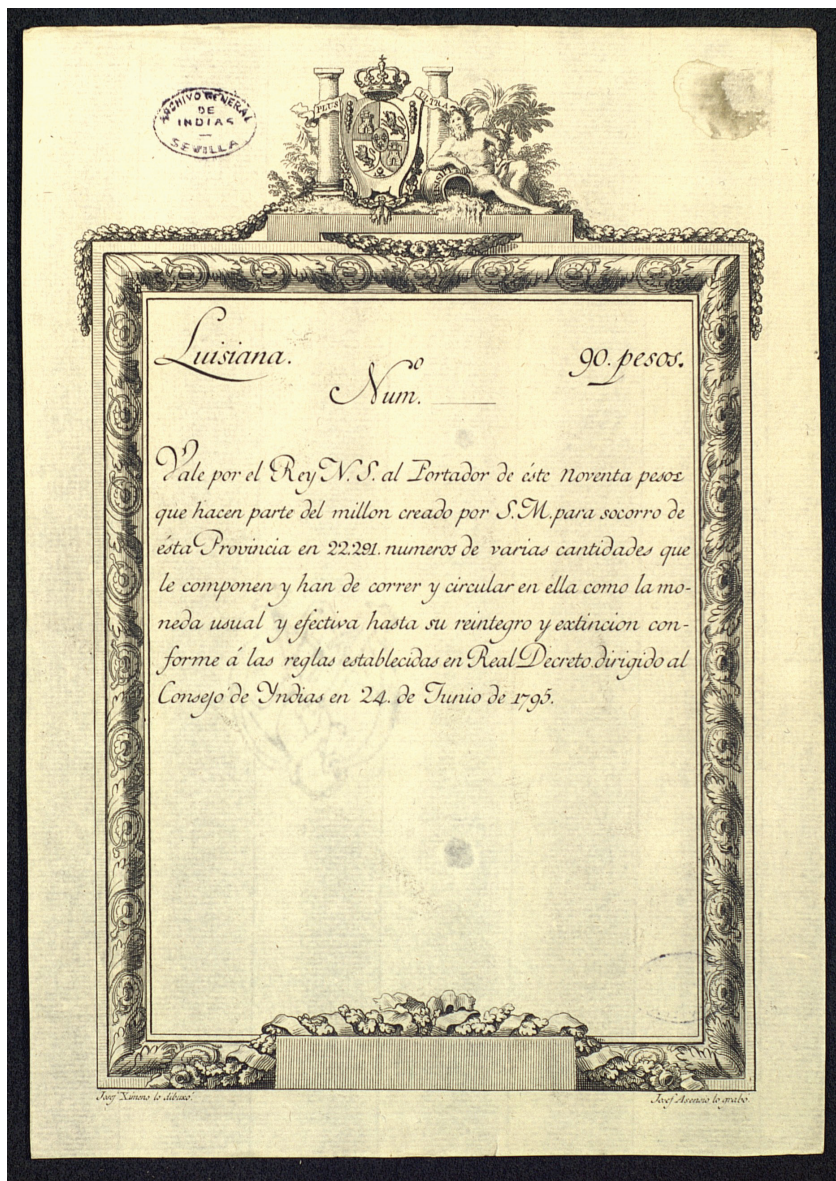 ARCHIVO GENERAL
DE
INDIAS
SEVILLA
PLUS ULTRA
Luisiana. 90. pesos.
Num.º
Vale por el Rey N. S. al Portador de éste Noventa pesos
que hacen parte del millon creado por S. M. para socorro de
ésta Provincia en 22.291. numeros de varias cantidades que
le componen y han de correr y circular en ella como la mo-
neda usual y efectiva hasta su reintegro y extincion con-
forme á las reglas establecidas en Real Decreto dirigido al
Consejo de Yndias en 24. de Junio de 1795.
Josef Ximeno lo dibuxó.
Josef Asensio lo grabó.